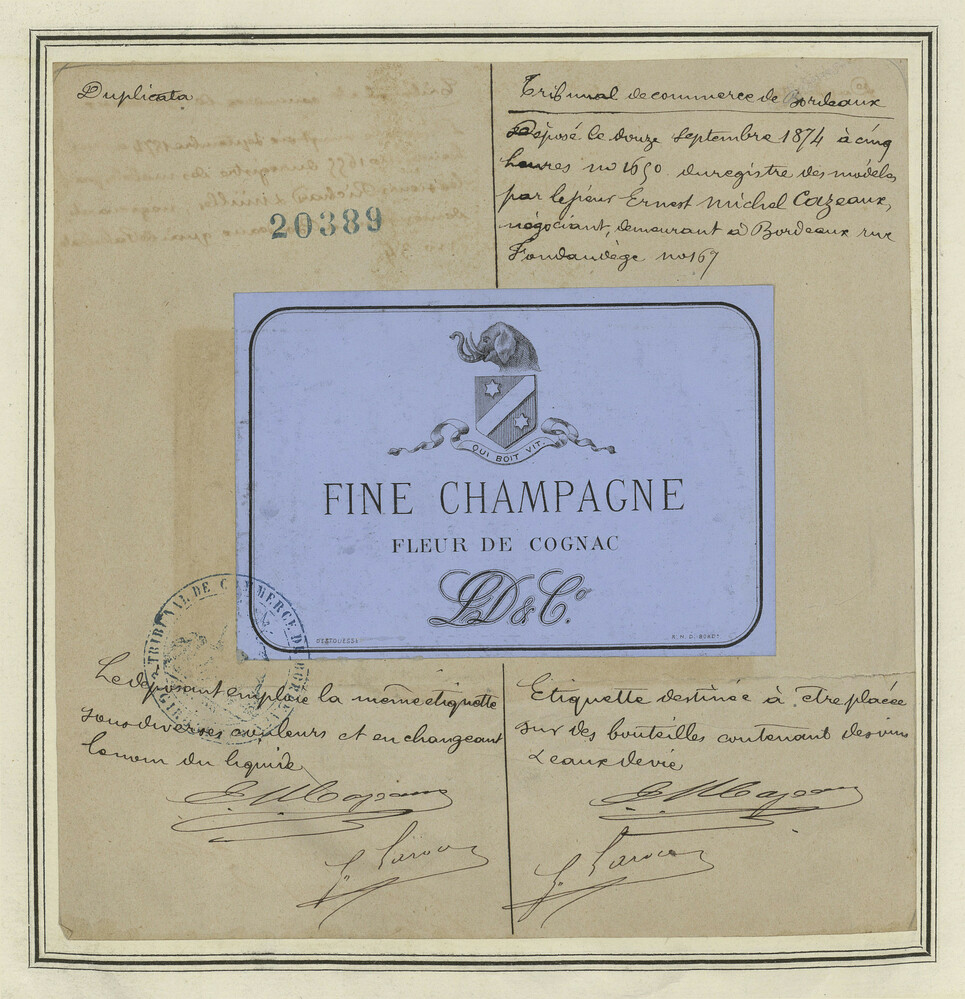 Duplicata
20389
Tribunal de commerce de Bordeaux
Déposé le douze Septembre 1874 à cinq
heures no 1650 du registre des modèles
par le sieur Ernest Michel Cazeaux,
négociant, demeurant à Bordeaux rue
Fondaudège no 167
QUI BOIT VIT.
FINE CHAMPAGNE
FLEUR DE COGNAC
LD & Co
DESTOUESSE
R. M. D. BORDX
TRIBUNAL DE COMMERCE DE
Le déposant emploie la même étiquette
sous diverses couleurs et en changeant
le nom du liquide
Etiquette destinée à être placée
sur des bouteilles contenant des vins
& eaux de vie
E M Cazeaux
E M Cazeaux